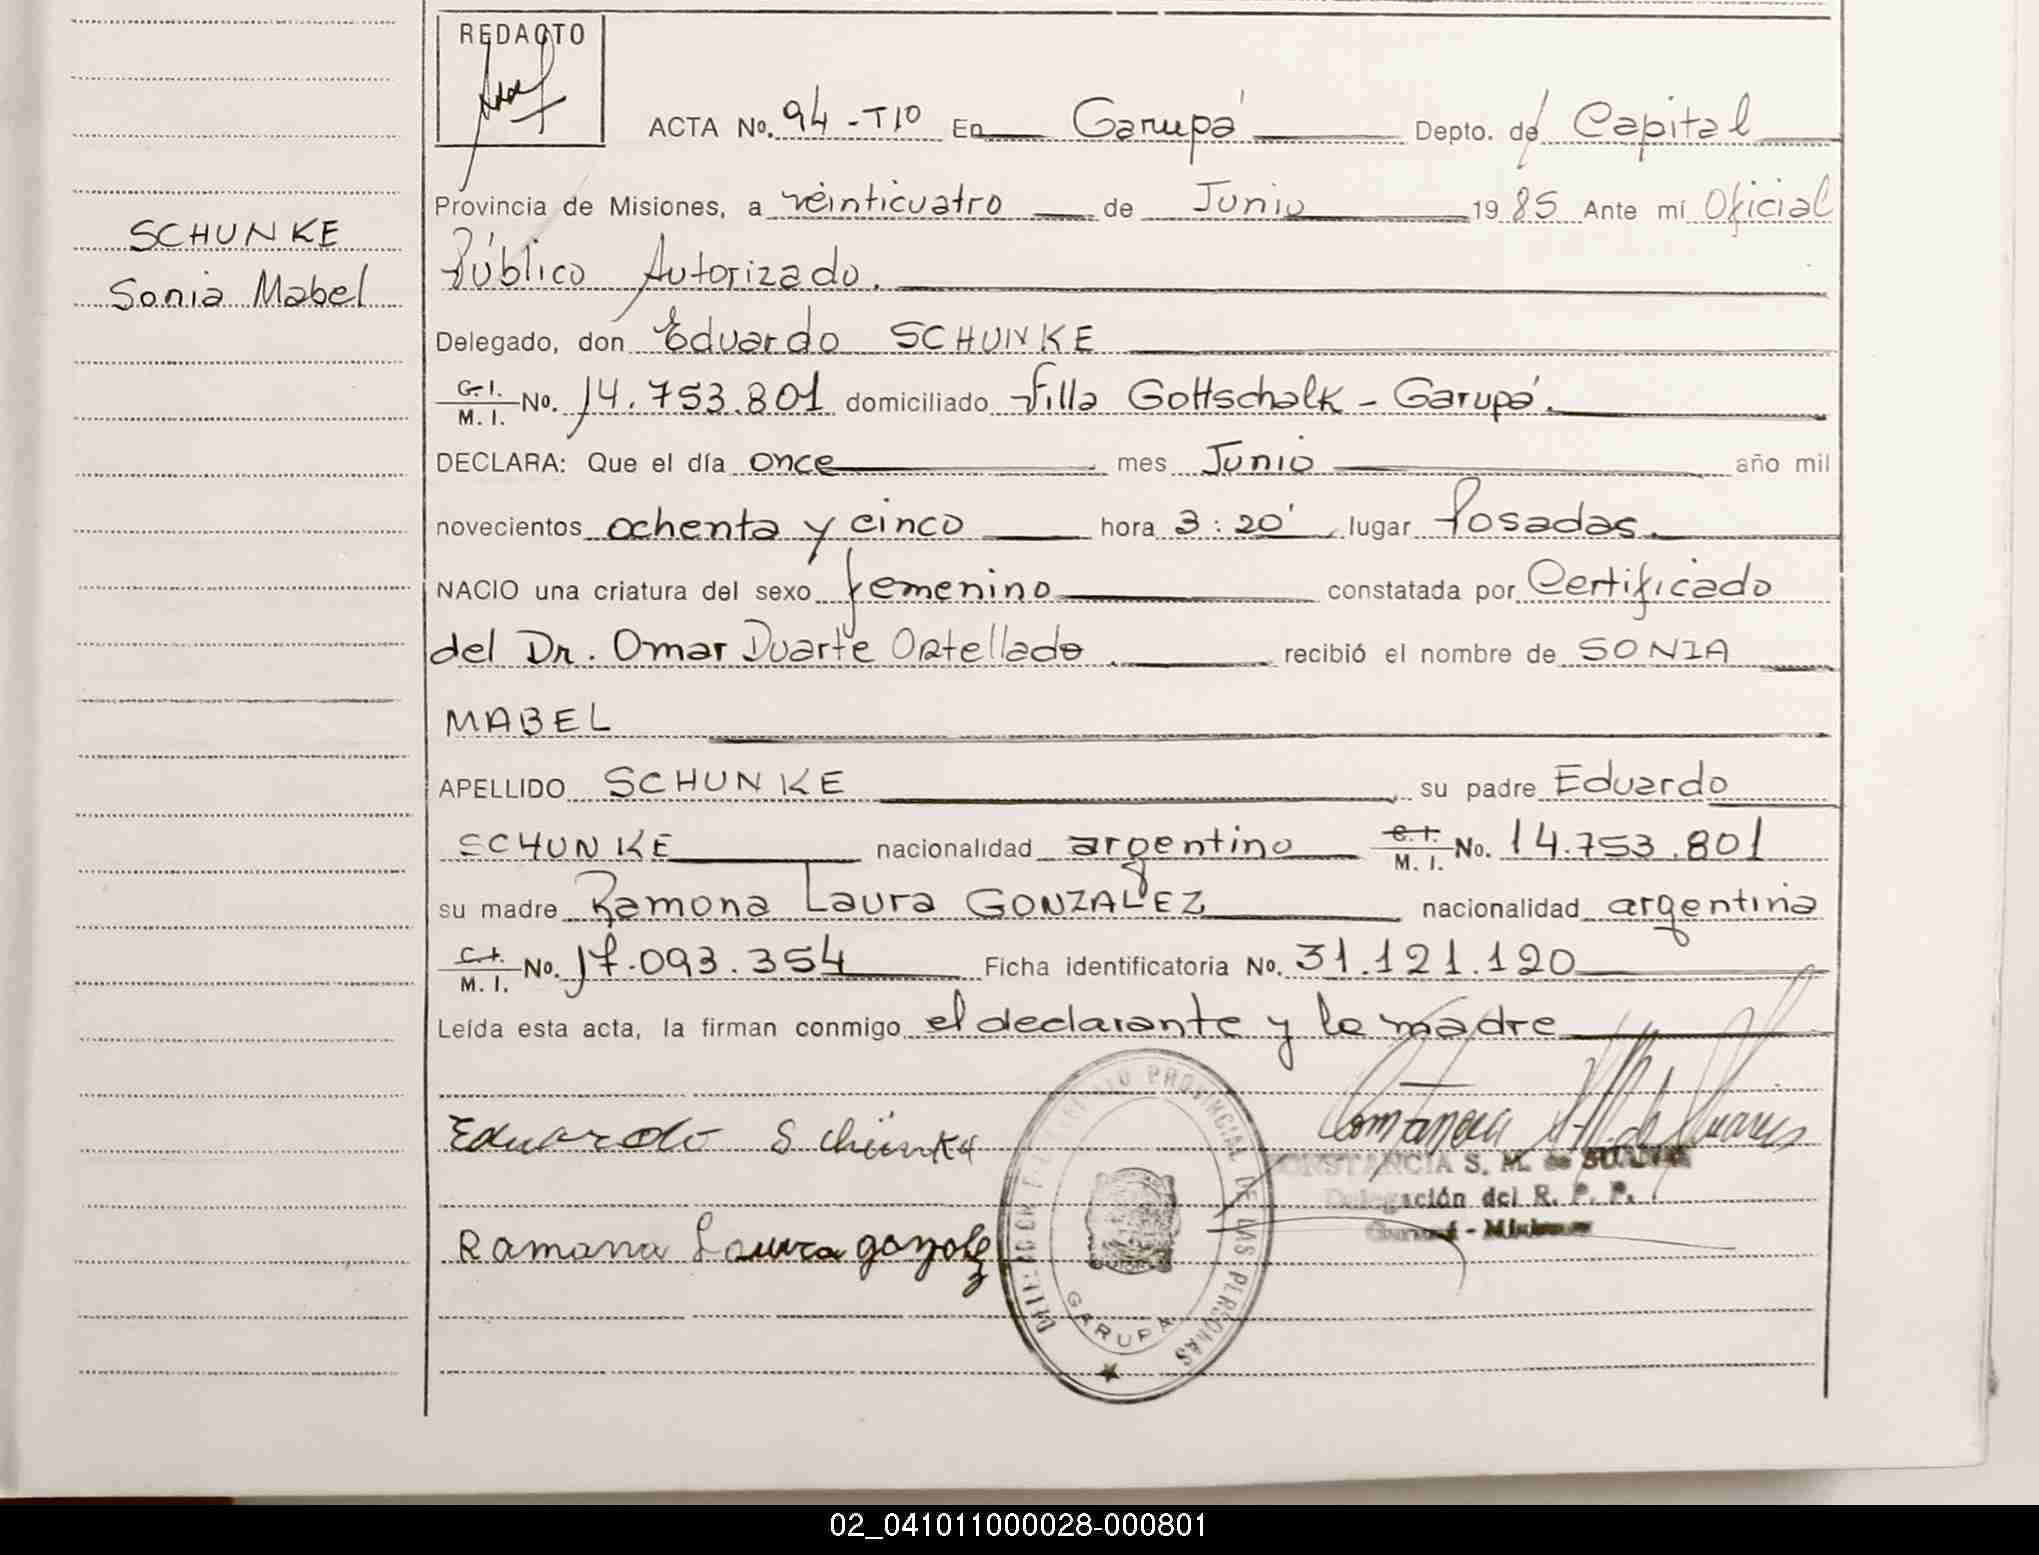 REDACTO
ACTA No. 94-T10 En Garupá Depto. de Capital
Provincia de Misiones, a veinticuatro de Junio 1985 Ante mí Oficial
SCHUNKE
Público Autorizado.
Sonia Mabel
Delegado, don Eduardo SCHUNKE
C. I. / M. I. No. 14.753.801 domiciliado Villa Gottschalk - Garupá.
DECLARA: Que el día once mes Junio año mil
novecientos ochenta y cinco hora 3:20' lugar Posadas.
NACIO una criatura del sexo femenino constatada por Certificado
del Dr. Omar Duarte Ortellado recibió el nombre de SONIA
MABEL
APELLIDO SCHUNKE su padre Eduardo
SCHUNKE nacionalidad argentino C. I. / M. I. No. 14.753.801
su madre Ramona Laura GONZALEZ nacionalidad argentina
C. I. / M. I. No. 17.093.354 Ficha identificatoria No. 31.121.120
Leída esta acta, la firman conmigo el declarante y la madre
Eduardo Schünke
CONSTANCIA S. M. de SUAREZ
Delegación del R. P. P.
Garupá - Misiones
Ramona Laura gonzalez
REGISTRO PROVINCIAL DE LAS PERSONAS
GARUPA
02_041011000028-000801